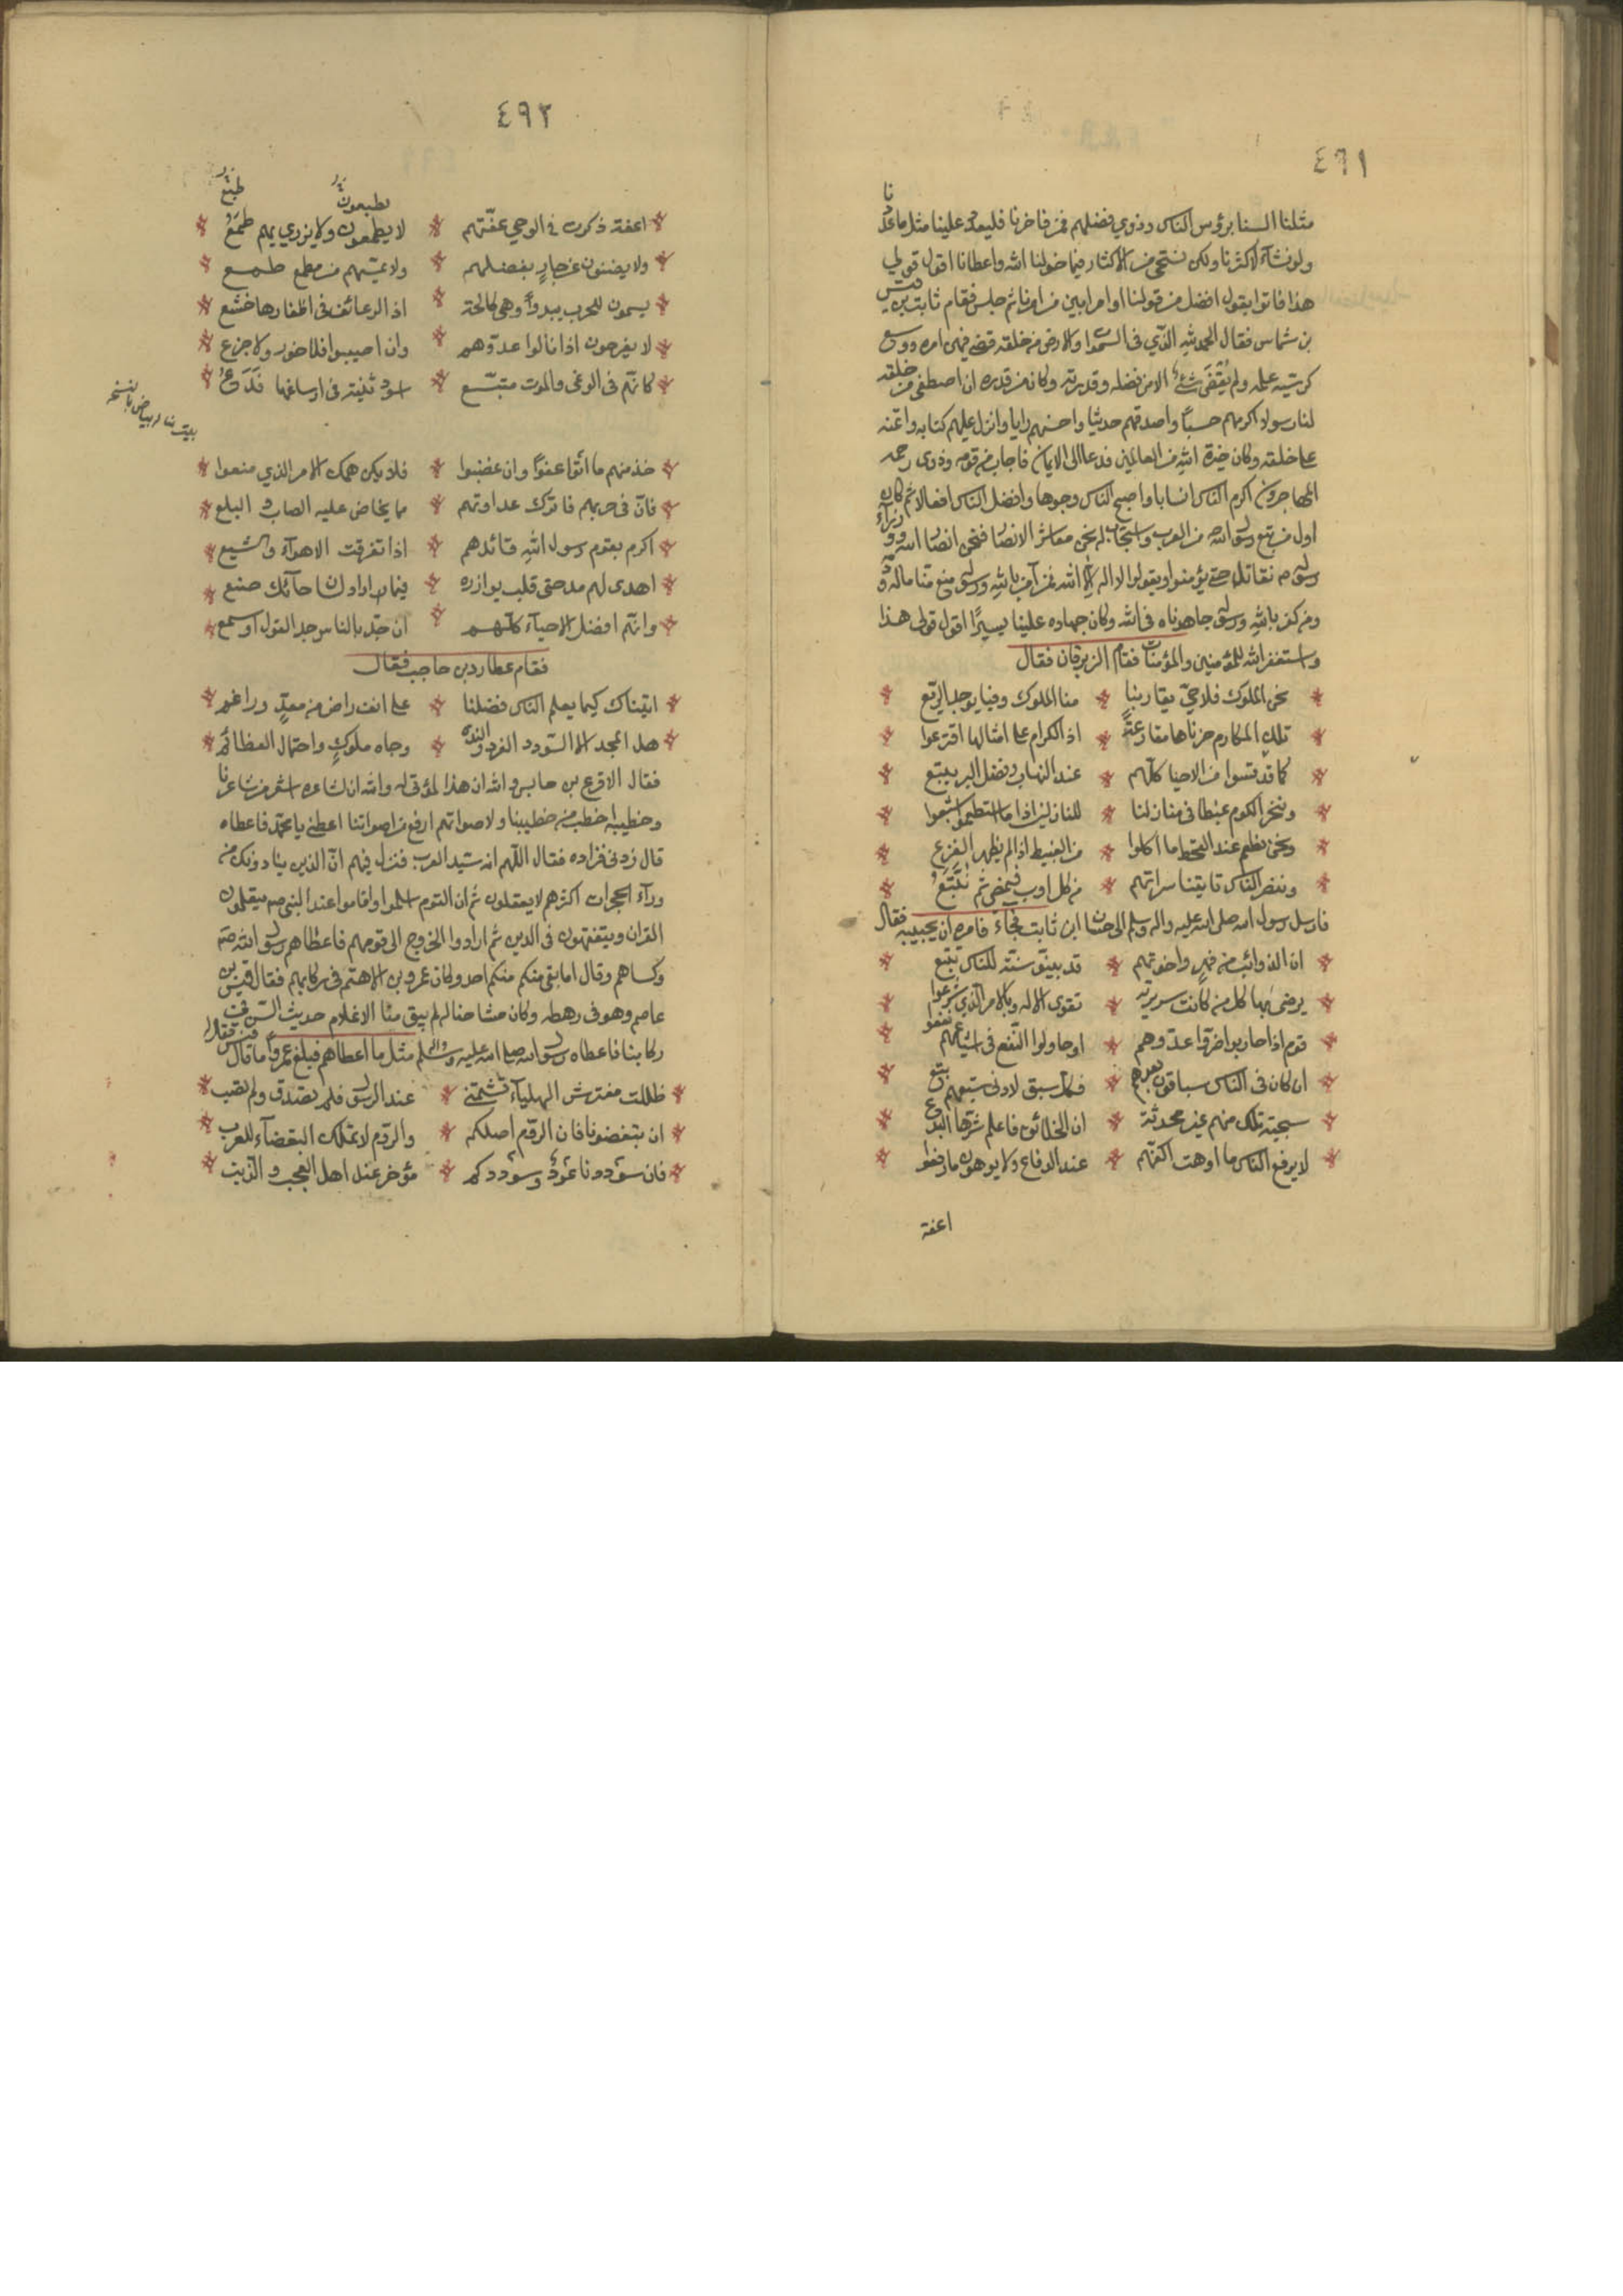 ٤٩١
مثلنا السنا برؤس الناس وذوي فضلهم فمن فاخرنا فليعد علينا مثل ما عددنا
ولو نشآء لاكثرنا ولكن نستحى من الاكثار فيما خولنا الله واعطانا اقول قولي
هذا فاتوا بقول افضل من قولنا او امر ابين من امرنا ثم جلس فقام ثابت بن قيس
بن شماس فقال الحمد لله الذي في السموات والارض من خلقه قضى فيهن امره ووسع
كرسيه علمه ولم يقض شئ الا من فضله وقدرته وكان من قدره ان اصطفى من خلقه
لنا رسولا اكرمهم حسبًا واصدقهم حديثا واحسنهم رايا وانزل عليهم كتابه وائتمنه
على خلقه وكان خيرة الله من العالمين فدعا الى الايمان فاجاب من قومه وذوى رحمه
المهاجرون اكرم الناس انسابا واصبح الناس وجوها وافضل الناس افعالا ثم كان
اول من تبع رسول الله من العرب واستجاب له نحن معاشر الانصار فنحن انصار الله ووزراء
رسوله نقاتل حتى يؤمنوا ويقولوا لا اله الا الله فمن آمن بالله ورسوله منع منا ماله ودمه
ومن كفر بالله ورسوله جاهدناه في الله وكان جهاده علينا يسيرًا اقول قولى هذا
واستغفر الله للمؤمنين والمؤمنات فقام الزبرقان فقال
نحن الملوك فلا حيّ يقاربنا * منا الملوك وفينا يوجد الربع
تلك المكارم حزناها مقارعةً * اذ الكرام على امثالها اقترعوا
كم قد قسوا من الاحيا كلهم * عند النهاب وفضل البر يتبع
وننحر الكوم عبطا في منازلنا * للنازلين اذا ما استطعموا شبعوا
ونحن نطعم عند القحط ما اكلوا * من العبيط اذا لم يظهر الفزع
وننصر الناس تاتينا سراتهم * من كل اوب فيمضي ثم نتبع
فارسل رسول الله صلى الله عليه واله وسلم الى حسان ابن ثابت فجآء فامره ان يجيبه فقال
ان الذوائب من فهر واخوتهم * قد بينوا سنة للناس تتبع
يرضى بها كل من كانت سريرته * تقوى الاله وبالامر الذي شرعوا
قوم اذا حاربوا ضروا عدوهم * او حاولوا النفع في اشياعهم نفعوا
ان كان في الناس سباقون بعدهم * فكل سبق لادنى سبقهم تبع
سجية تلك منهم غير محدثة * ان الخلائق فاعلم شرها البدع
لا يرفع الناس ما اوهت اكفهم * عند الدفاع ولا يوهون ما رفعوا
اعفة
٤٩٢
يطبعون طبع
اعفة ذكرت في الوحي عفتهم * لا يطمعون ولا يزري بهم طمع
ولا يضنون عن جار بفضلهم * ولا يمسهم من مطمع طمع
يسمون للحرب يبدوا وهي كالحة * اذ الزعانف في اظفارها خشع
لا يفرحون اذا نالوا عدوهم * وان اصيبوا فلا خور ولا جزع
كانهم في الوغى والموت متبع * اسود بيشة في ارساغها فدع
بيت بياض بالنسخة
خذ منهم ما اتوا عفوًا وان غضبوا * فلا يكن همك الامر الذي منعوا
فان في حربهم فاترك عداوتهم * مما يخاض عليه الصاب والسلع
اكرم بقوم رسول الله قائدهم * اذا تفرقت الاهوآء والشيع
اهدى لهم مدحتى قلب يوازره * فيما اراد لسان حآئك صنع
وانهم افضل الاحيآء كلهم * ان جد بالناس جد القول او سمع
فقام عطارد بن حاجب فقال
اتيناك كيما يعلم الناس فضلنا * على انف راض من معدٍ وراغم
هل المجد الا السودد الفرد والندى * وجاه ملوكٍ واحتمال العظائم
فقال الاقرع بن حابس والله ان هذا لمؤتى له والله ان لشاعره اشعر من شاعرنا
وخطيبه اخطب من خطيبنا ولاصواتهم ارفع من اصواتنا اعطني يا محمد فاعطاه
قال زدنى فزاده فقال اللهم انه سيد العرب فنزل فيهم ان الذين ينادونك من
ورآء الحجرات اكثرهم لا يعقلون ثم ان القوم اسلموا واقاموا عند النبي صم يتعلمون
القران ويتفقهون في الدين ثم ارادوا الخروج الى قومهم فاعطاهم رسول الله صم
وكساهم وقال اما بقى منكم احد وكان عمرو بن الاهتم في ركابهم فقال قيس بن
عاصم وهو في رهطه وكان مشاحنا له لم يبق منا الا غلام حديث السن في
ركابنا فاعطاه رسول الله صلى الله عليه واله وسلم مثل ما اعطاهم فبلغ عمروًا ما قال قيس فقال
ظللت مفترش الهلبآء تشتمني * عند الرسول فلم تصدق ولم تصب
ان تبغضونا فان الروم اصلكم * والروم لا تملك البغضآء للعرب
فان سوددنا عود وسوددكم * مؤخر عند اهل العجب والذنب